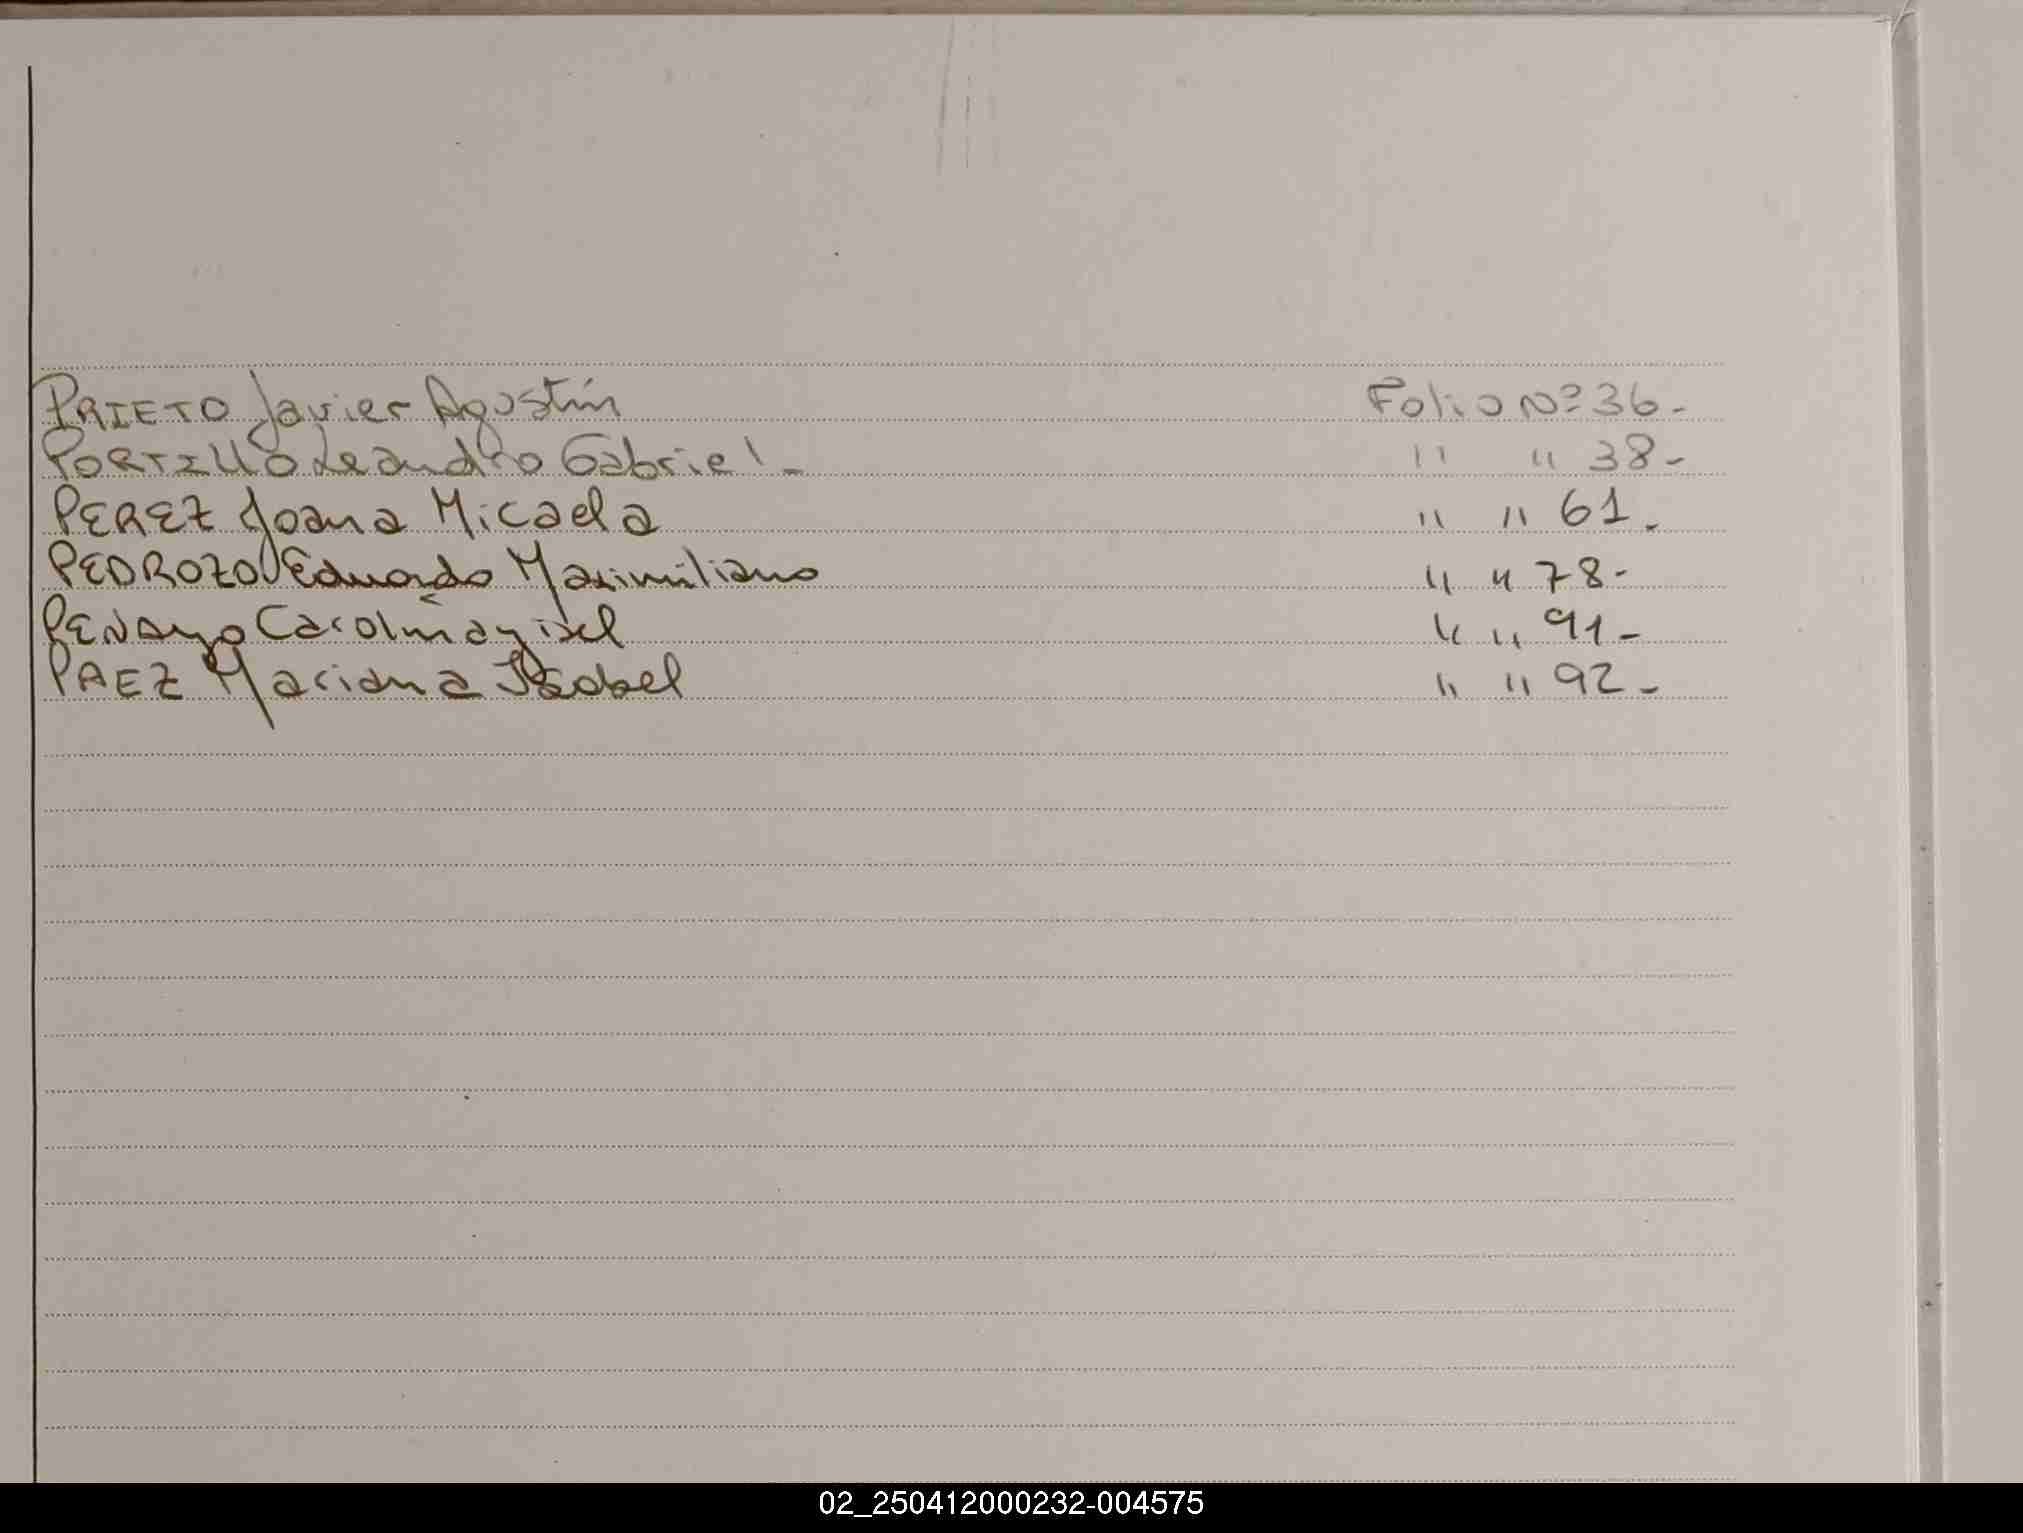 PRIETO Javier Agustín Folio Nº 36-
PORTILLO Leandro Gabriel - " " 38-
PEREZ Joana Micaela " " 61.
PEDROZO Eduardo Maximiliano " " 78-
PENAyo Carolina yisel " " 91-
PAEZ Mariana Isabel " " 92-
02_250412000232-004575